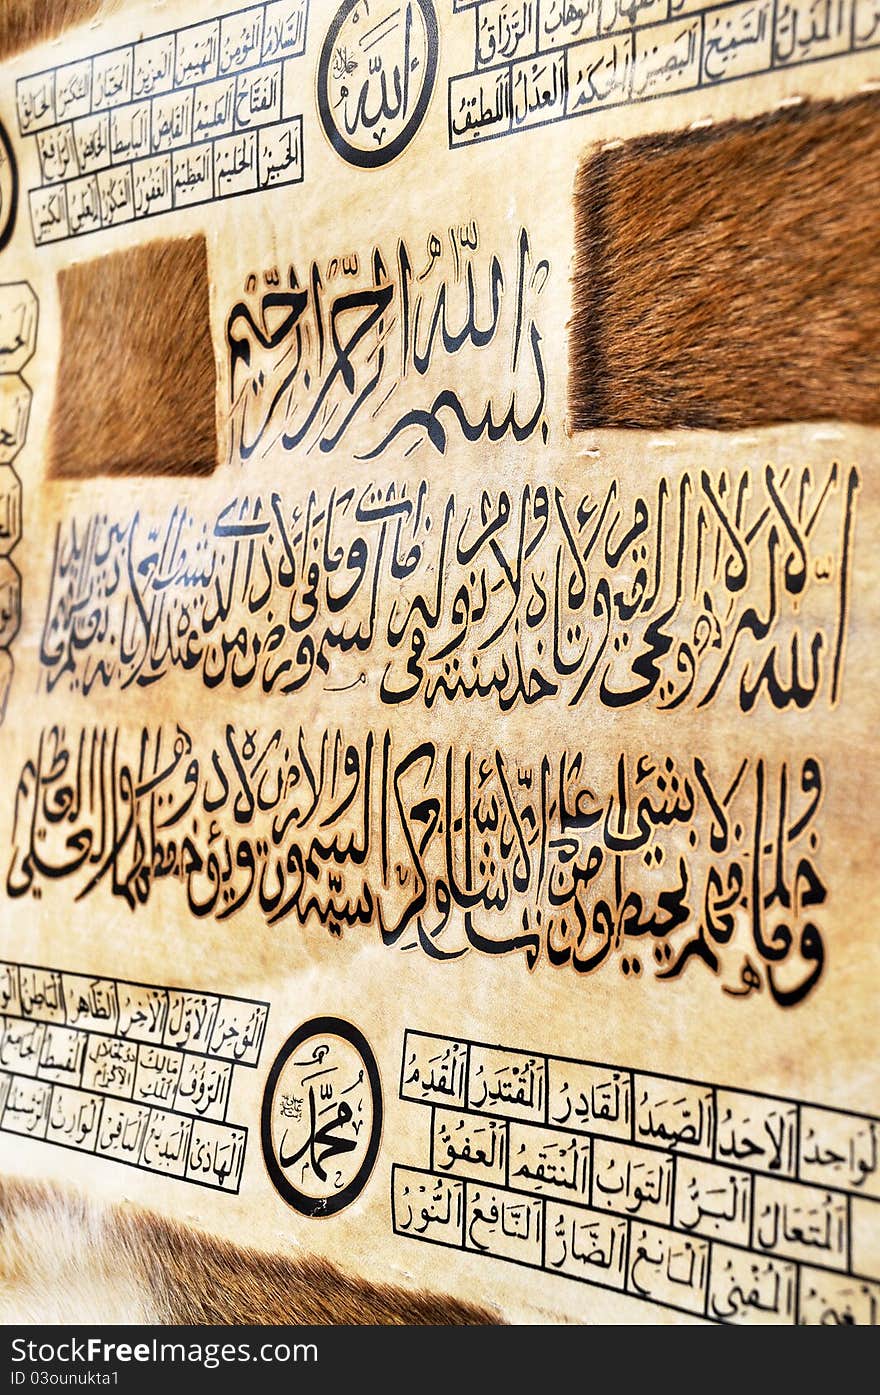 الله جل جلاله
السلام المؤمن المهيمن العزيز الجبار المتكبر الخالق
الفتاح العليم القابض الباسط الخافض الرافع
الخبير الحليم العظيم الغفور الشكور العلي الكبير
الوهاب الرزاق
المذل السميع البصير الحكم العدل اللطيف
بسم الله الرحمن الرحيم
الله لا اله الا هو الحي القيوم لا تاخذه سنة ولا نوم له ما في السموات وما في الارض من ذا الذي يشفع عنده الا باذنه يعلم ما بين ايديهم
وما خلفهم ولا يحيطون بشيء من علمه الا بما شاء وسع كرسيه السموات والارض ولا يؤده حفظهما وهو العلي العظيم
المُؤخِرُ الاَوَّلُ الاَخِرُ الظَّاهِرُ البَاطِنُ
الرَّؤُفُ مَالِكُ المُلْكِ ذو الجلال والاكرام المُقسِطُ الجَامِعُ
الهَادِىْ البَدِيْعُ البَاقِىْ الوَارِثُ الرَّشِيْدُ
مُحَمَّد
الْوَاحِدُ الْاَحَدُ الصَّمَدُ الْقَادِرُ الْمُقْتَدِرُ الْمُقَدِمُ
الْمُتَعَالُ الْبَرُّ التَوَابُ الْمُنْتَقِمُ الْعَفُوُّ
الْمُغْنِىُ الْمَانِعُ الضَّارُّ النَّافِعُ النُّوْرُ
StockFreeImages.com
ID 03ounukta1